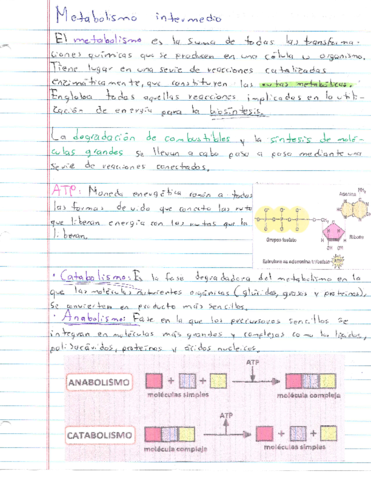 Metabolismo intermedio
El metabolismo es la suma de todas las transforma
ciones químicas que se producen en una célula u organismo.
Tiene lugar en una serie de reacciones catalizadas
enzimáticamente, que constituyen las rutas metabólicas.
Engloba todas aquellas reacciones implicadas en la utili-
zación de energía para la biosíntesis.
La degradación de combustibles y la síntesis de molé-
culas grandes se llevan a cabo paso a paso mediante una
serie de reacciones conectadas.
ATP: Moneda energética común a todas
las formas de vida que conecta las rutas
que liberan energía con las rutas que la
liberan.
Adenina
NH₂
Grupos fosfato
Ribosa
· Catabolismo: Es la fase degradadora del metabolismo en la
que las moléculas nutrientes orgánicas (glúcidos, grasas y proteínas)
se convierten en producto más sencillos.
· Anabolismo: Fase en la que los precursores sencillos se
integran en moléculas más grandes y complejas como los lípidos,
polisacáridos, proteínas y ácidos nucleicos.
ANABOLISMO
+
+
ATP
moléculas simples
molécula compleja
CATABOLISMO
ATP
+
+
molécula compleja
moléculas simples